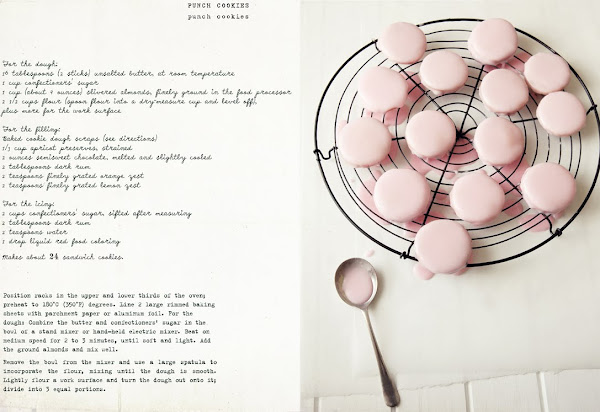 PUNCH COOKIES
punch cookies
For the dough:
tablespoons (2 sticks) unsalted butter, at room temperature
1 cup confectioners' sugar
1 cup (about 4 ounces) slivered almonds, finely ground in the food processor
2 1/2 cups flour (spoon flour into a dry-measure cup and level off),
plus more for the work surface
For the filling:
Baked cookie dough scraps (see directions)
1/3 cup apricot preserves, strained
2 ounces semisweet chocolate, melted and slightly cooled
2 tablespoons dark rum
2 teaspoons finely grated orange zest
2 teaspoons finely grated lemon zest
For the icing:
2 cups confectioners' sugar, sifted after measuring
2 tablespoons dark rum
2 teaspoons water
1 drop liquid red food coloring
Makes about 24 sandwich cookies.
Position racks in the upper and lower thirds of the oven;
preheat to 180°C (350°F) degrees. Line 2 large rimmed baking
sheets with parchment paper or aluminum foil. For the
dough: Combine the butter and confectioners' sugar in the
bowl of a stand mixer or hand-held electric mixer. Beat on
medium speed for 2 to 3 minutes, until soft and light. Add
the ground almonds and mix well.
Remove the bowl from the mixer and use a large spatula to
incorporate the flour, mixing until the dough is smooth.
Lightly flour a work surface and turn the dough out onto it;
divide into 3 equal portions.